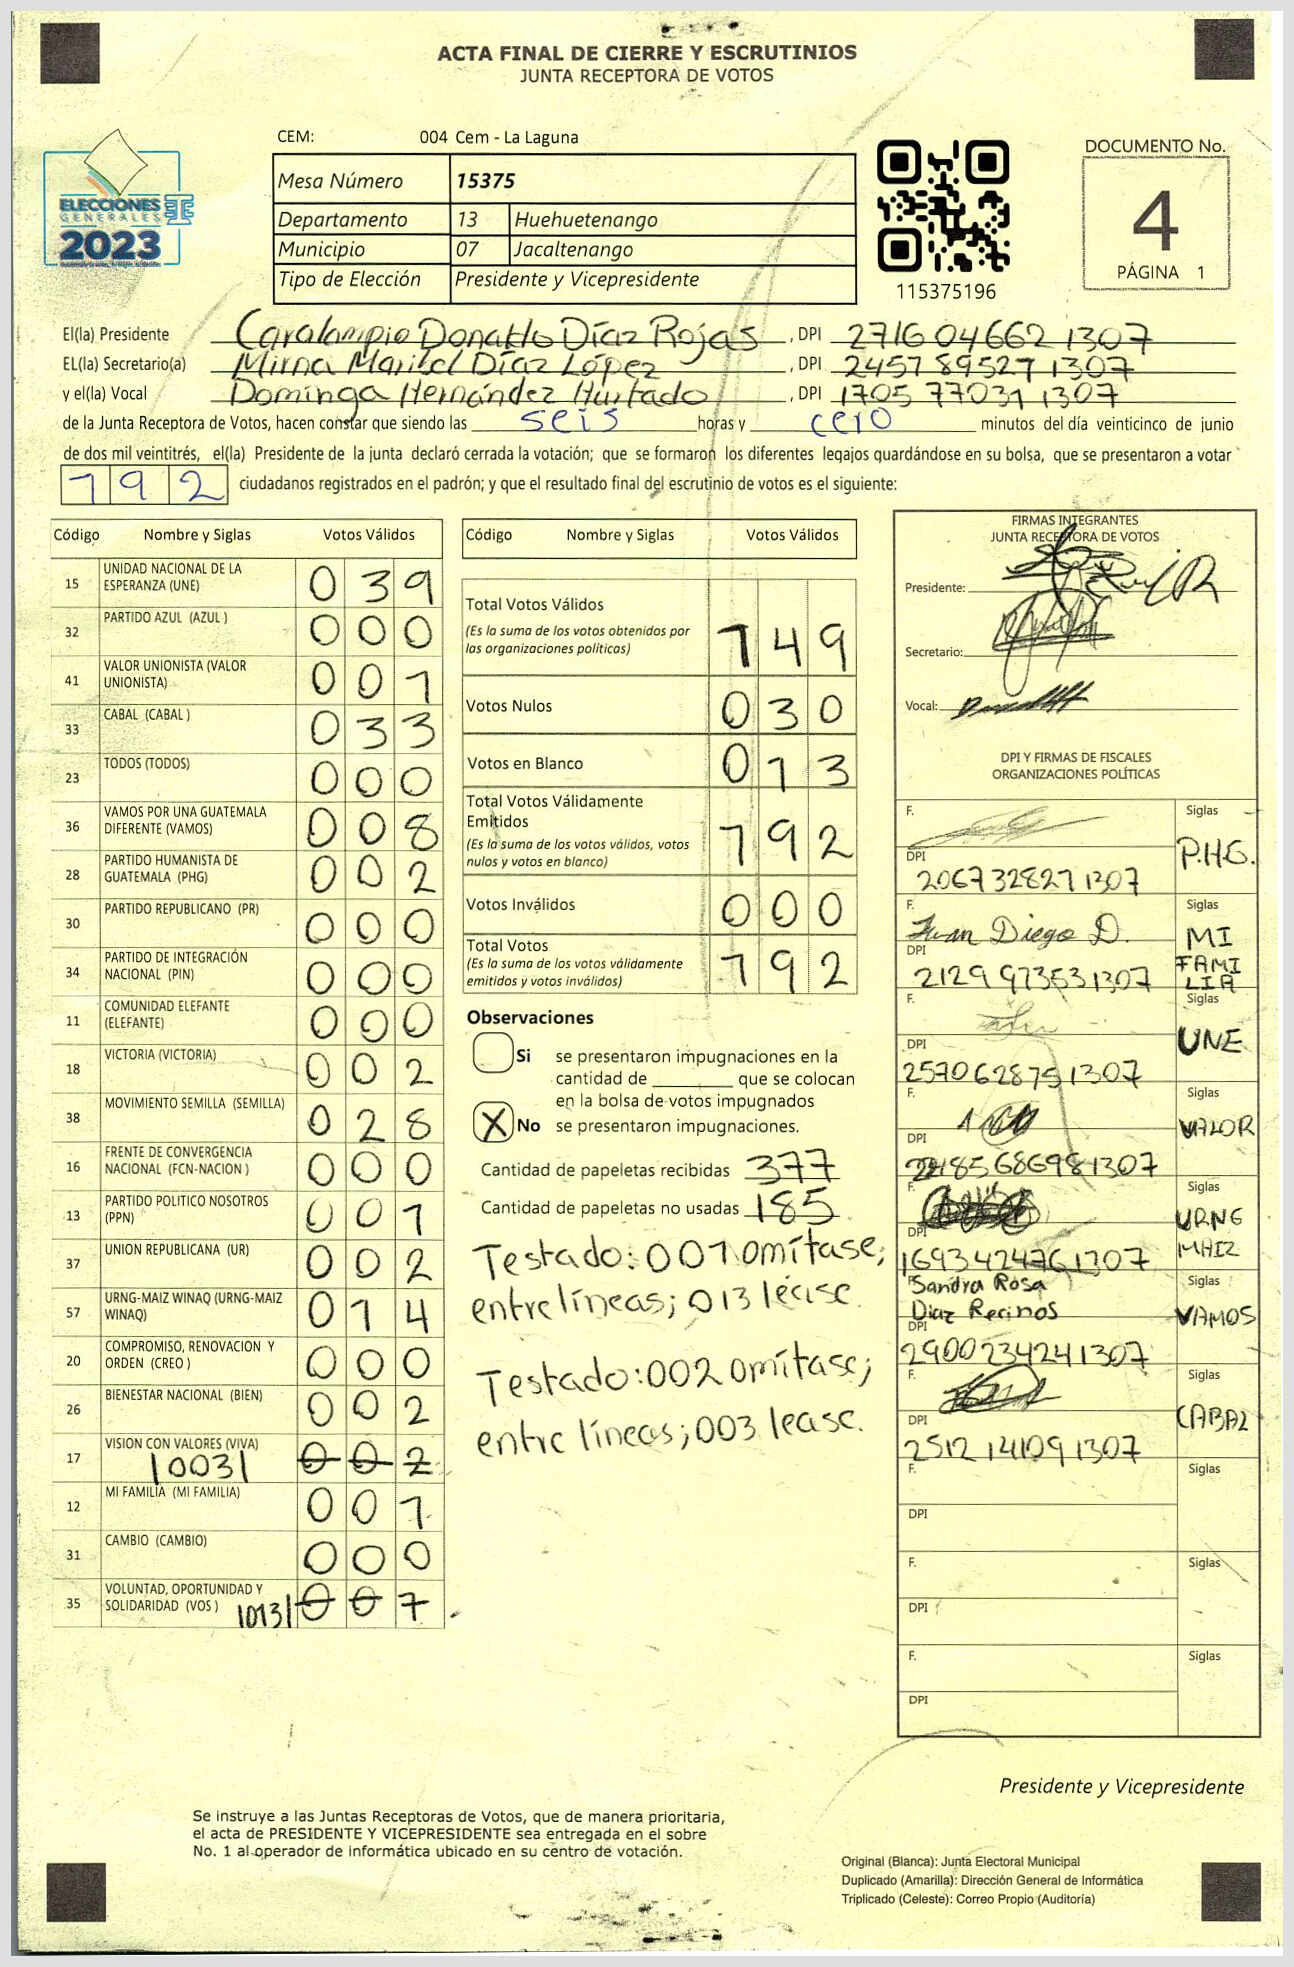 ACTA FINAL DE CIERRE Y ESCRUTINIOS
JUNTA RECEPTORA DE VOTOS
ELECCIONES
GENERALES
2023
CEM: 004 Cem - La Laguna
Mesa Número 15375
Departamento 13 Huehuetenango
Municipio 07 Jacaltenango
Tipo de Elección Presidente y Vicepresidente
115375196
DOCUMENTO No.
4
PÁGINA 1
El(la) Presidente Caralampio Donaldo Díaz Rojas, DPI 2716 04662 1307
EL(la) Secretario(a) Mirna Maribel Díaz López, DPI 2457 89527 1307
y el(la) Vocal Dominga Hernández Hurtado, DPI 1705 77031 1307
de la Junta Receptora de Votos, hacen constar que siendo las seis horas y cero minutos del día veinticinco de junio
de dos mil veintitrés, el(la) Presidente de la junta declaró cerrada la votación; que se formaron los diferentes legajos quardándose en su bolsa, que se presentaron a votar
192 ciudadanos registrados en el padrón; y que el resultado final del escrutinio de votos es el siguiente:
Código Nombre y Siglas Votos Válidos
15 UNIDAD NACIONAL DE LA ESPERANZA (UNE) 039
32 PARTIDO AZUL (AZUL ) 000
41 VALOR UNIONISTA (VALOR UNIONISTA) 001
33 CABAL (CABAL ) 033
23 TODOS (TODOS) 000
36 VAMOS POR UNA GUATEMALA DIFERENTE (VAMOS) 008
28 PARTIDO HUMANISTA DE GUATEMALA (PHG) 002
30 PARTIDO REPUBLICANO (PR) 000
34 PARTIDO DE INTEGRACIÓN NACIONAL (PIN) 000
11 COMUNIDAD ELEFANTE (ELEFANTE) 000
18 VICTORIA (VICTORIA) 002
38 MOVIMIENTO SEMILLA (SEMILLA) 028
16 FRENTE DE CONVERGENCIA NACIONAL (FCN-NACION ) 000
13 PARTIDO POLITICO NOSOTROS (PPN) 001
37 UNION REPUBLICANA (UR) 002
57 URNG-MAIZ WINAQ (URNG-MAIZ WINAQ) 014
20 COMPROMISO, RENOVACION Y ORDEN (CREO ) 000
26 BIENESTAR NACIONAL (BIEN) 002
17 VISION CON VALORES (VIVA) |003| 002
12 MI FAMILIA (MI FAMILIA) 001
31 CAMBIO (CAMBIO) 000
35 VOLUNTAD, OPORTUNIDAD Y SOLIDARIDAD (VOS ) |013| 001
Código Nombre y Siglas Votos Válidos
Total Votos Válidos 149
(Es la suma de los votos obtenidos por
las organizaciones politicas)
Votos Nulos 030
Votos en Blanco 013
Total Votos Válidamente
Emitidos 192
(Es la suma de los votos válidos, votos
nulos y votos en blanco)
Votos Inválidos 000
Total Votos 192
(Es la suma de los votos válidamente
emitidos y votos inválidos)
Observaciones
Si se presentaron impugnaciones en la
cantidad de ________ que se colocan
en la bolsa de votos impugnados
X No se presentaron impugnaciones.
Cantidad de papeletas recibidas 377
Cantidad de papeletas no usadas 185
Testado: 001 omítase;
entre líneas; 013 léase.
Testado: 002 omítase;
entre líneas; 003 lease.
FIRMAS INTEGRANTES
JUNTA RECEPTORA DE VOTOS
Presidente:
Secretario:
Vocal:
DPI Y FIRMAS DE FISCALES
ORGANIZACIONES POLÍTICAS
F. Siglas
P.H.G.
DPI
2067 32827 1307
F. Juan Diego D. Siglas
MI
FAMI
LIA
DPI
2129 97353 1307
F. Siglas
UNE
DPI
2570 62875 1307
F. Siglas
VALOR
DPI
F. Siglas
URNG
MAIZ
DPI
1693 42476 1307
F. Sandra Rosa Siglas
Diaz Recinos
VAMOS
DPI
2900 23424 1307
F. Siglas
CABAL
DPI
2512 14109 1307
F. Siglas
DPI
F. Siglas
DPI
F. Siglas
DPI
Presidente y Vicepresidente
Se instruye a las Juntas Receptoras de Votos, que de manera prioritaria,
el acta de PRESIDENTE Y VICEPRESIDENTE sea entregada en el sobre
No. 1 al operador de informática ubicado en su centro de votación.
Original (Blanca): Junta Electoral Municipal
Duplicado (Amarilla): Dirección General de Informática
Triplicado (Celeste): Correo Propio (Auditoría)